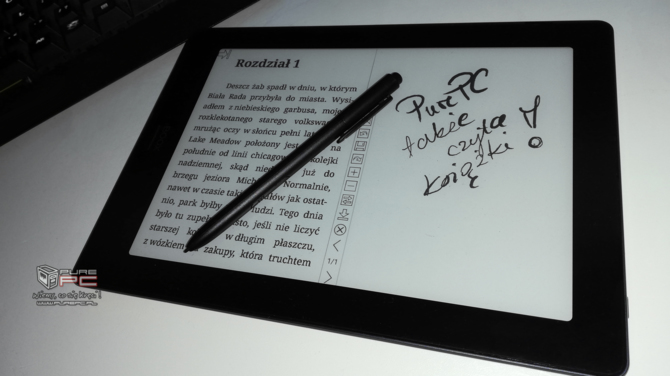 Rozdział 1
Deszcz żab spadł w dniu, w którym
Biała Rada przybyła do miasta. Wysi-
adłem z niebieskiego garbusa, moje
rozklekotanego starego volkswa
mrużąc oczy w słońcu pełni la
Lake Meadow położony jest na
południe od linii chicago kolejki
nadziemnej, skąd nie już do
brzegu jeziora Mich Normalnie,
nawet w czasie taki ałów jak ostat-
nio, park byłby ludzi. Tego dnia
było tu zupeł sto, jeśli nie liczyć
starszej ko w długim płaszczu,
z wózkiem zakupy, która truchtem
1/1
PurePC
także
czyta
książki!
PURE
PC
wiemy, co się kręci!
www.purepc.pl